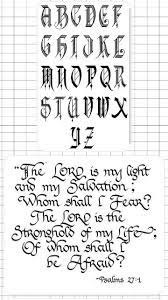 A B C D E F
G H I J K L
M N O P Q R
S T U V W X
Y Z
"The LORD is my light
and my Salvation;
Whom shall I Fear?
The LORD is the
Stronghold of my Life;
Of whom shall I
be Afraid?"
~Psalms 27:1